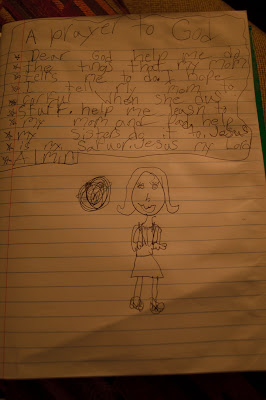 A prayer to God
* Dear God help me do
* the things that my mom
* tells me to do. I hope
* I tell my mom to
* when she dus
* stufk. help me lesin to
* my mom and God help
* my sisters do it to. Jesus
* is my Jesus my Lord
* A min